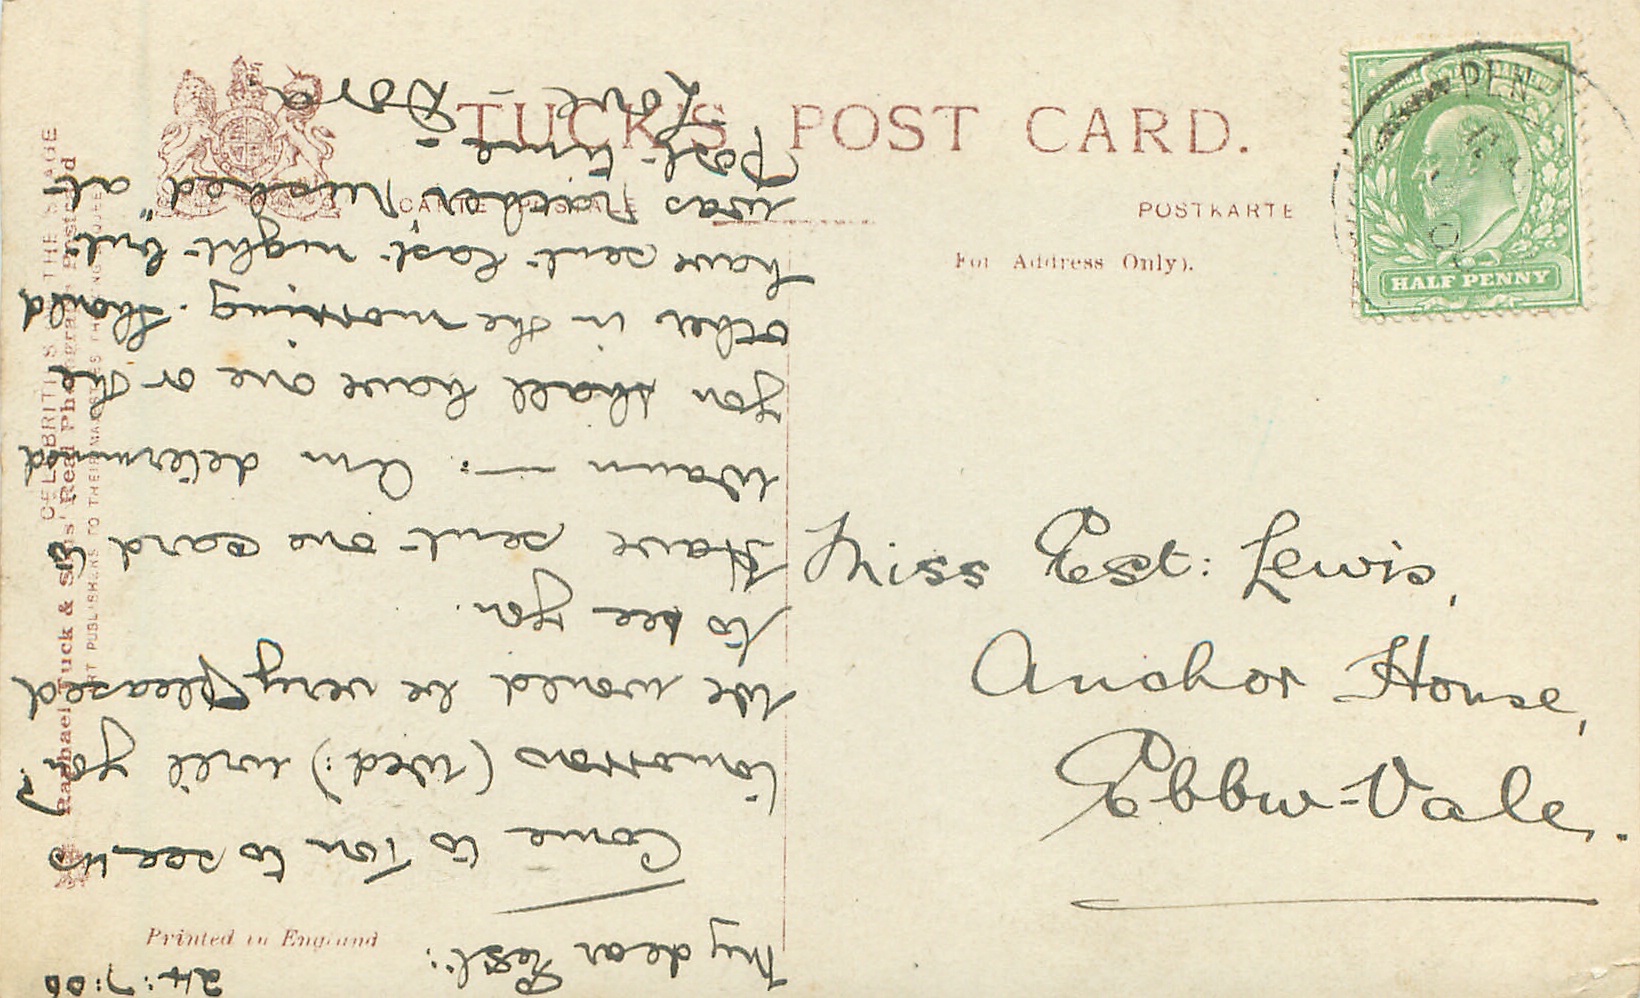 TUCK'S POST CARD.
CARTE POSTALE
POSTKARTE
For Address Only).
HALF PENNY
PEN
Miss Est: Lewis,
Anchor House,
Ebbw-Vale.
24:7:06
My dear Est:
Come to Ton to see us
tomorrow (Wed:) will you?
We would be very pleased
to see you.
Have sent one card to
Waun — : Am determined
you shall have one or the
other in the morning. Should
have sent last night but
was rather "rushed" at
Post time –
Love
Dora
CELEBRITIES THE STAGE
Raphael Tuck & Sons' "Real Photograph" Postcard
ART PUBLISHERS TO THEIR MAJESTIES THE KING &
Printed in England